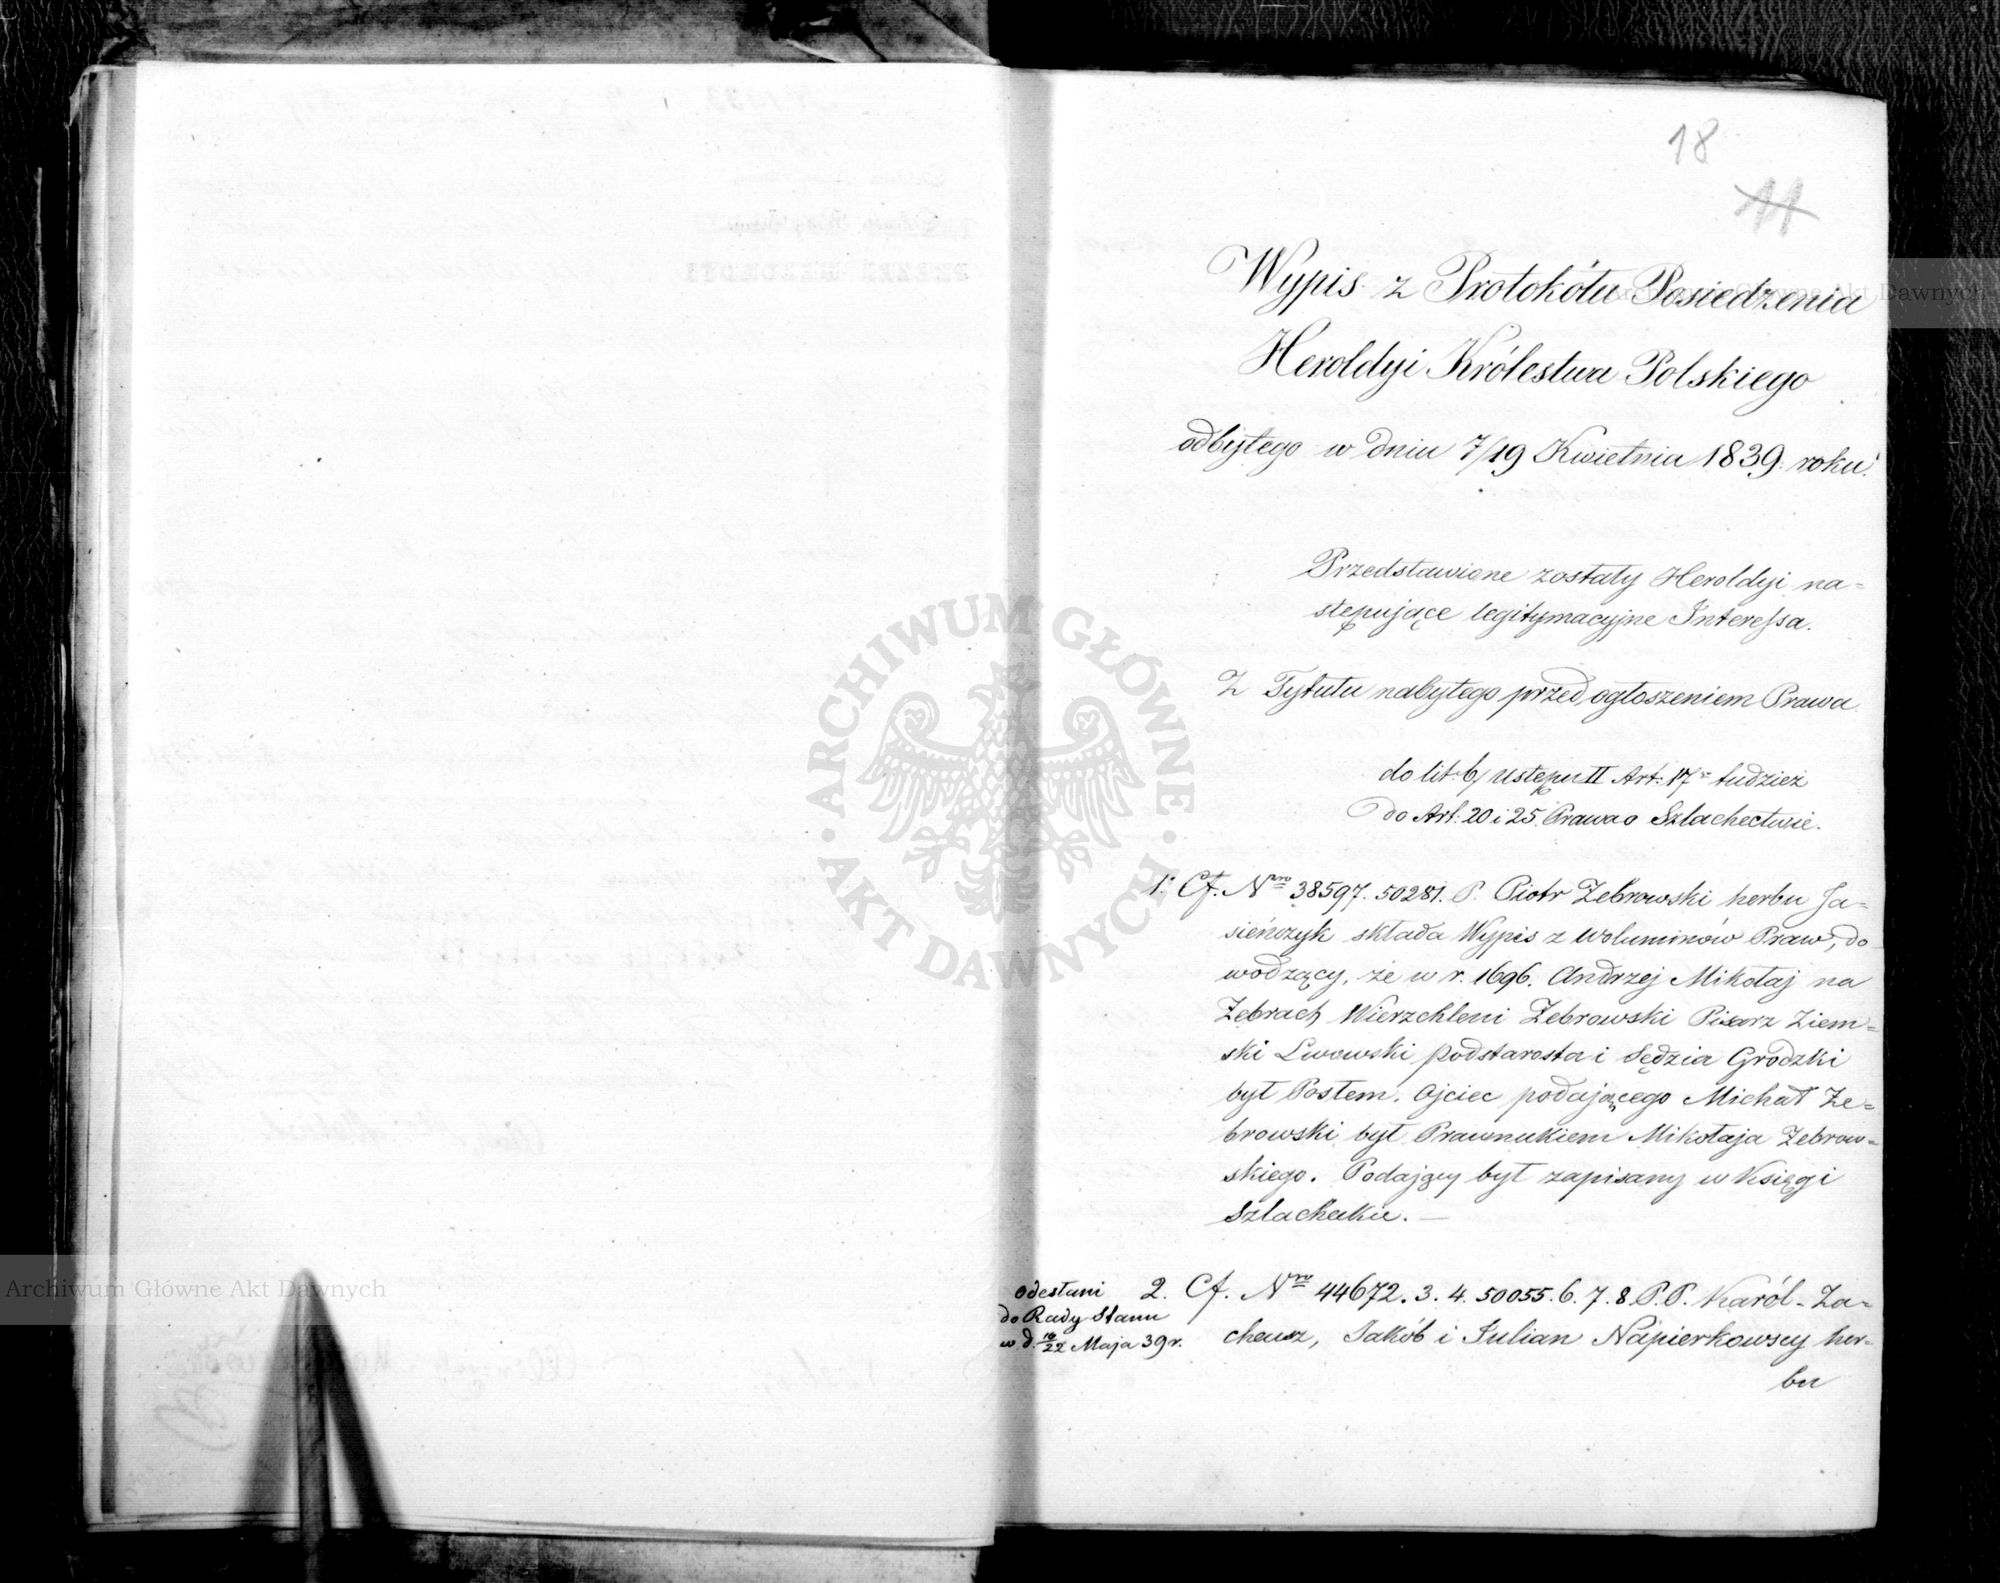 18
11
Wypis z Protokółu Posiedzenia
Heroldyi Królestwa Polskiego
odbytego w dniu 7/19 Kwietnia 1839 roku.
Przedstawione zostały Heroldyi na=
stępujące legitymacyjne Interessa.
Z Tytułu nabytego przed ogłoszeniem Prawa
do lit: b, ustępu II Art: 17º tudzież
do Art: 20 i 25. Prawa o Szlachectwie.
1. Cf. Nro 38597. 50281. P. Piotr Żebrowski herbu Ja=
sieńczyk składa Wypis z woluminów Praw, do
wodzący, że w r. 1696. Andrzej Mikołaj na
Żebrach Wierzchleni Żebrowski Pisarz Ziem=
ski Lwowski podstarosta i Sędzia Grodzki
był Posłem. Ojciec podającego Michał Że=
browski był Prawnukiem Mikołaja Żebrow=
skiego. Podający był zapisany w Księgi
Szlacheckie. —
odesłani
do Rady Stanu
w d. 10/22 Maja 39 r.
2. Cf. Nro 44672. 3. 4. 50055. 6. 7. 8. P.P. Karól-Za=
cheusz, Jakób i Julian Napierkowscy her=
bu
ARCHIWUM GŁÓWNE
AKT DAWNYCH
Archiwum Główne Akt Dawnych
Archiwum Główne Akt Dawnych